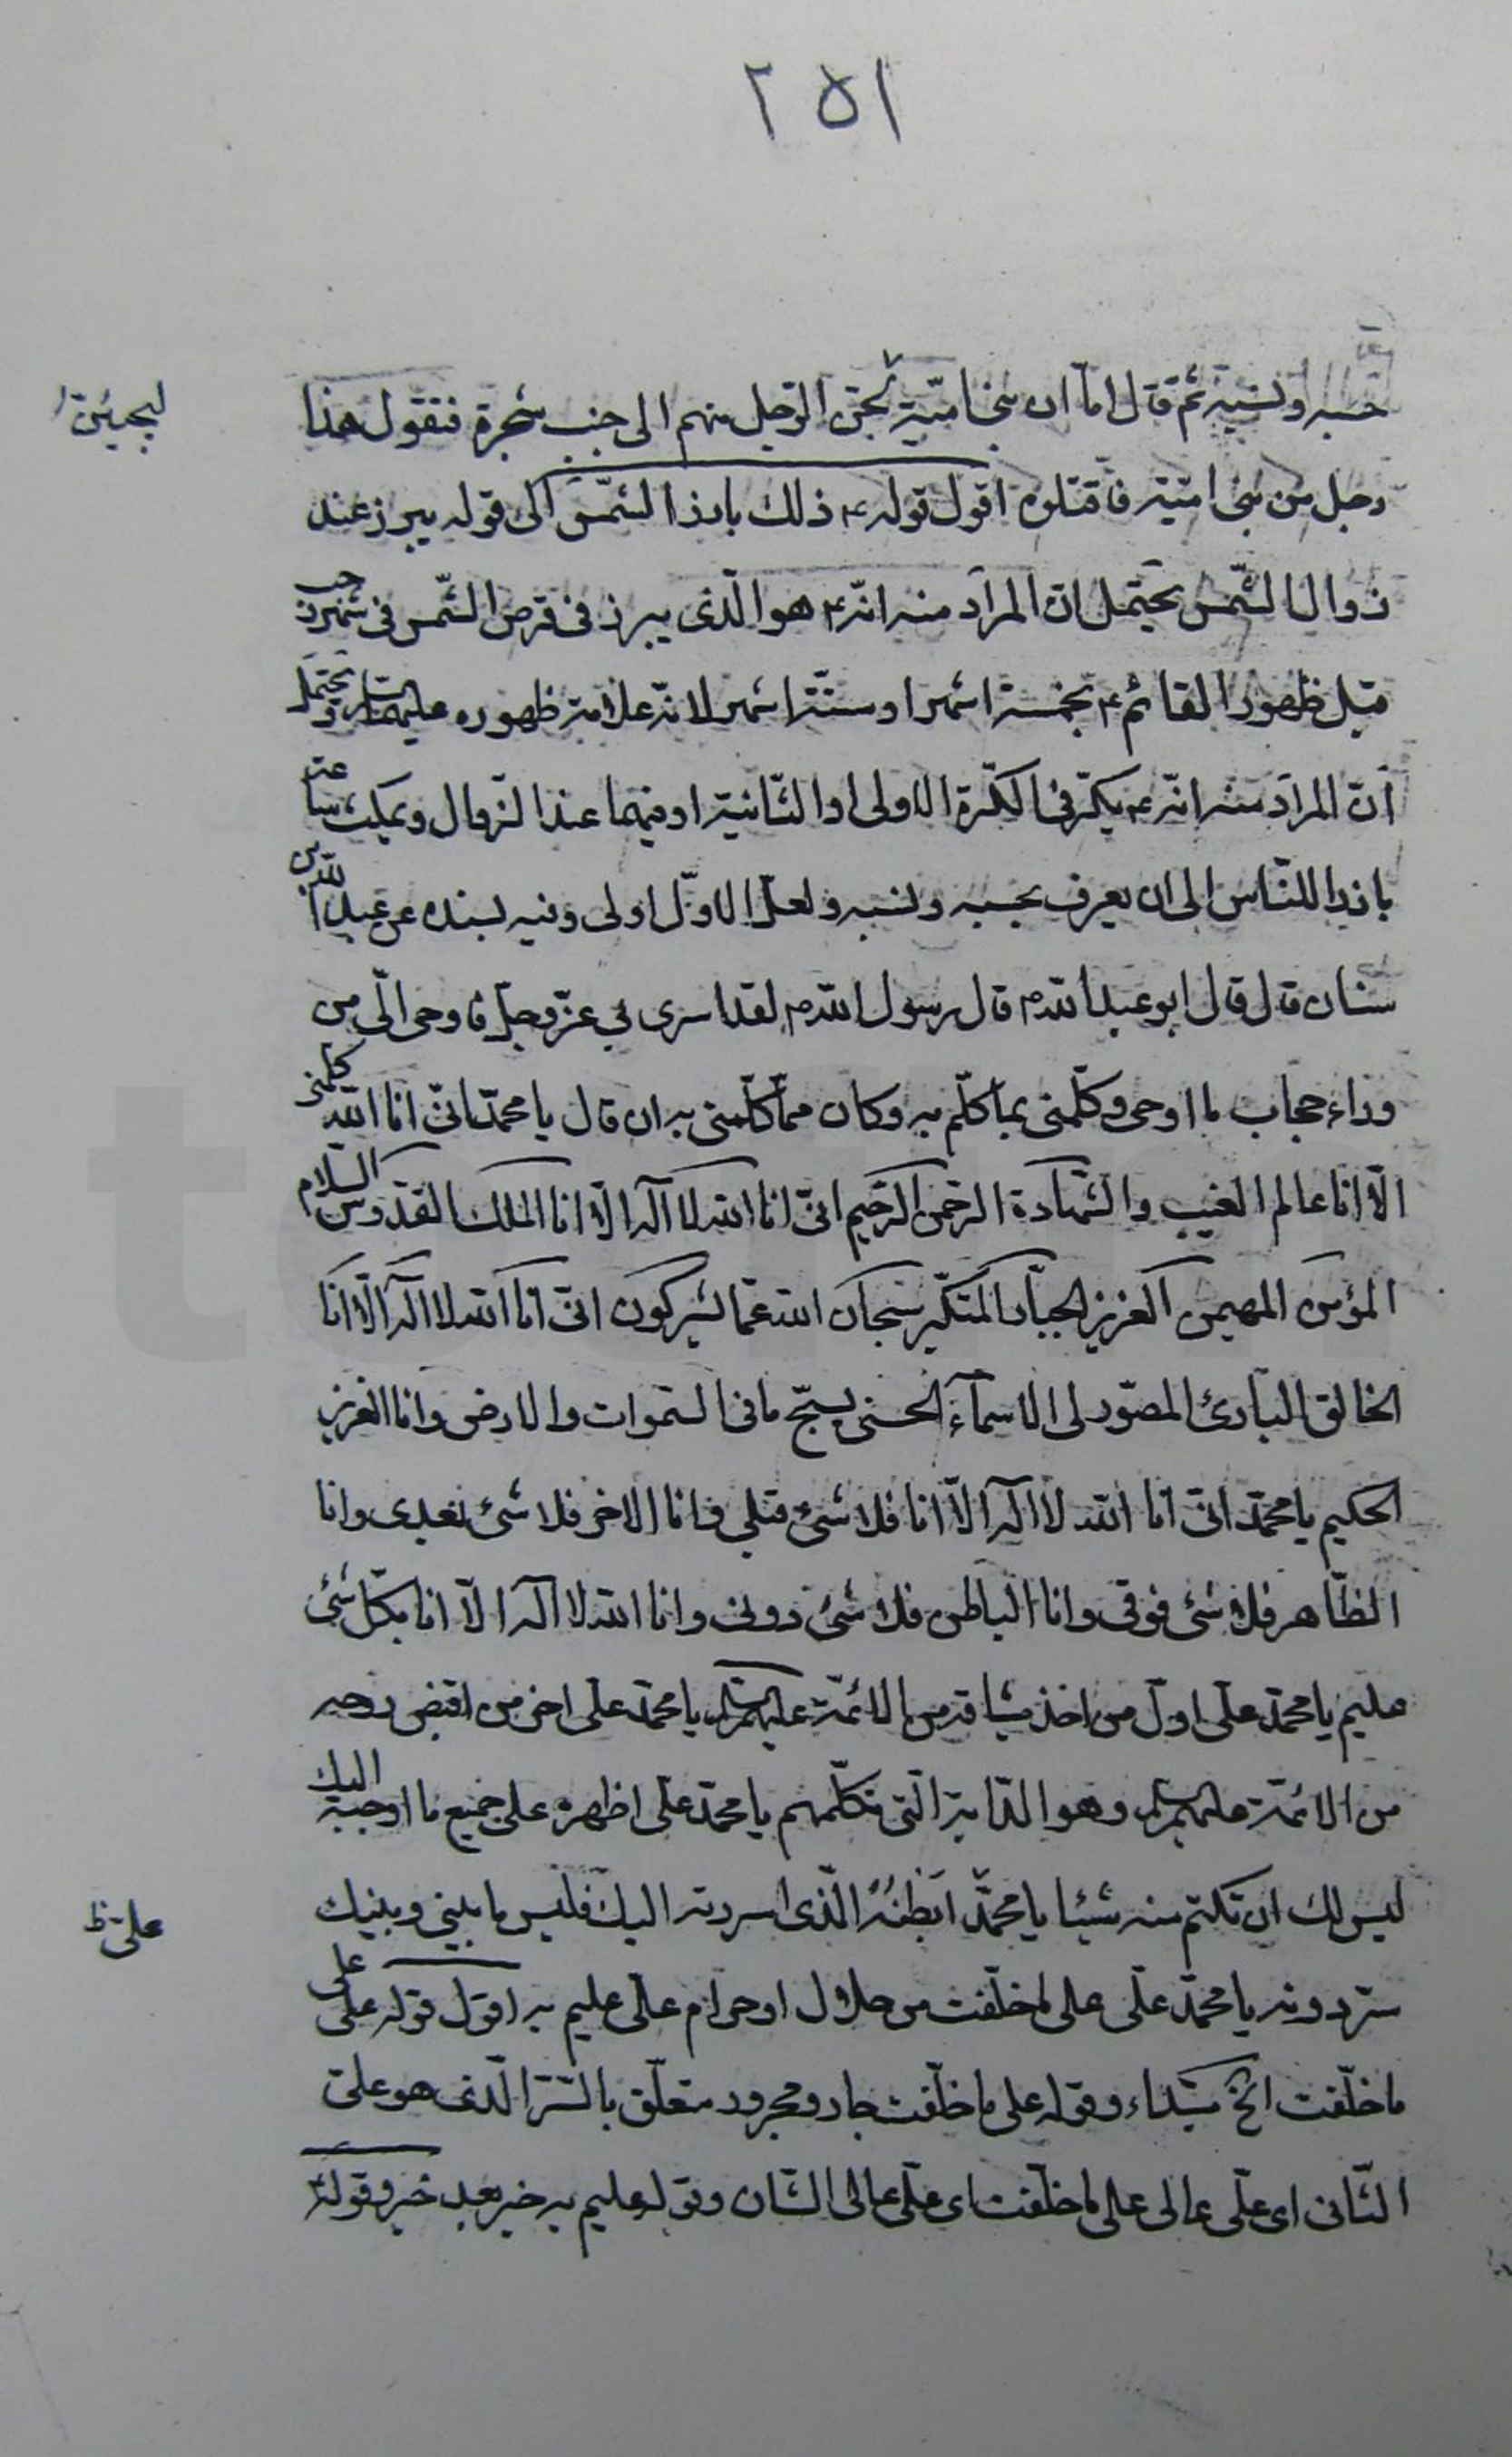 ٢٥١
حسبه ونسبه ثم قال اما ان بنى اميّة الرّجل منهم الى جنب شجرة فتقول هذا
ليجيئن
رجل من بنى اميّة فاقتلوه اقول قوله ع ذلك بارز الشّمس الى قوله يبرز عند
زوال الشّمس يحتمل انّ المراد منه انّه ع هو الّذى يبرز فى قرص الشّمس فى شهر رجب
قبل ظهور القائم ع بخمسة اشهر او ستّة اشهر لانّه علامة ظهوره عليهما السلام ويحتمل
انّ المراد منه انّه ع يكرّ فى الكرّة الاولى او الثّانية او فيهما عند الزّوال ويمكث ساعة
بارزا للنّاس الى ان يعرف بحسبه ونسبه ولعلّ الاوّل اولى وفيه بسنده عن عبدالله بن
سنان قال قال ابو عبدالله ع قال رسول الله ص لقد اسرى بى عزّ وجلّ فاوحى الىّ من
وراء حجاب ما اوحى وكلّمنى بما كلّم به وكان ممّا كلّمنى به ان قال يا محمّد انّى انا الله
الّا انا عالم الغيب والشّهادة الرّحمن الرّحيم انّى انا الله لا اله الّا انا الملك القدّوس السلام
المؤمن المهيمن العزيز الجبّار المتكبّر سبحان الله عمّا يشركون انّى انا الله لا اله الّا انا
الخالق البارئ المصوّر لى الاسمآء الحسنى يسبّح ما فى السّموات والارض وانا العزيز
الحكيم يا محمّد انّى انا الله لا اله الّا انا فلا شئ قبلى فانا الاخر فلا شئ بعدى وانا
الظّاهر فلا شئ فوقى وانا الباطن فلا شئ دونى وانا الله لا اله الّا انا بكلّ شئ
عليم يا محمّد علىّ اوّل من اخذ ميثاقه من الائمّة عليهم السلام يا محمّد علىّ اخر من اقبض روحه
من الائمّة عليهم السلام وهو الدّابة الّتى تكلّمهم يا محمّد علىّ اظهره على جميع ما اوحيته اليك
ليس لك ان تكتم منه شيئا يا محمّد ابطنه الّذى اسررته اليك فليس ما بينى وبينك
علىّ ظ
ستر دونه يا محمّد علىّ على ما خلقت من حلال او حرام علىّ عليم به اقول قوله علىّ على
ما خلقت الخ مبتداء وقوله على ما خلقت جار ومجرور متعلّق بالسّتر الّذى هو علىّ
الثّانى اى علىّ عالى على ما خلقت اى علىّ عالى الشّان وقوله عليم به خبر بعد خبر وقوله